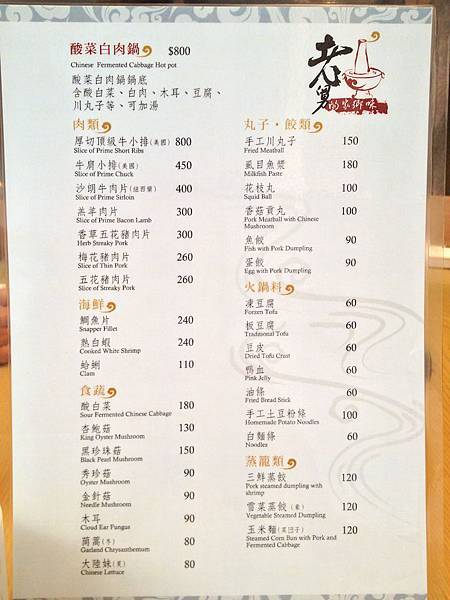 酸菜白肉鍋 $800
Chinese Fermented Cabbage Hot pot
酸菜白肉鍋鍋底
含酸白菜、白肉、木耳、豆腐、
川丸子等、可加湯
老舅
的家鄉味
肉類
厚切頂級牛小排(美國) 800
Slice of Prime Short Ribs
牛肩小排(美國) 450
Slice of Prime Chuck
沙朗牛肉片(紐西蘭) 400
Slice of Prime Sirloin
羔羊肉片 300
Slice of Prime Bacon Lamb
香草五花豬肉片 300
Herb Streaky Pork
梅花豬肉片 260
Slice of Thin Pork
五花豬肉片 260
Slice of Streaky Pork
海鮮
鯛魚片 240
Snapper Fillet
熟白蝦 240
Cooked White Shrimp
蛤蜊 110
Clam
食蔬
酸白菜 180
Sour Fermented Chinese Cabbage
杏鮑菇 130
King Oyster Mushroom
黑珍珠菇 150
Black Pearl Mushroom
秀珍菇 90
Oyster Mushroom
金針菇 90
Needle Mushroom
木耳 90
Cloud Ear Fungus
茼蒿(冬) 80
Garland Chrysanthemum
大陸妹(夏) 80
Chinese Lettuce
丸子・餃類
手工川丸子 150
Fried Meatball
虱目魚漿 180
Milkfish Paste
花枝丸 100
Squid Ball
香菇貢丸 100
Pork Meatball with Chinese
Mushroom
魚餃 90
Fish with Pork Dumpling
蛋餃 90
Egg with Pork Dumpling
火鍋料
凍豆腐 60
Forzen Tofu
板豆腐 60
Traditional Tofu
豆皮 60
Dried Tofu Crust
鴨血 60
Pink Jelly
油條 60
Fried Bread Stick
手工土豆粉條 100
Homemade Potato Noodles
白麵條 60
Noodles
蒸籠類
三鮮蒸餃 120
Pork steamed dumpling with
shrimp
雪菜蒸餃(素) 120
Vegetable Steamed Dumpling
玉米麵(菜團子) 120
Steamed Corn Bun with Pork and
Fermented Cabbage